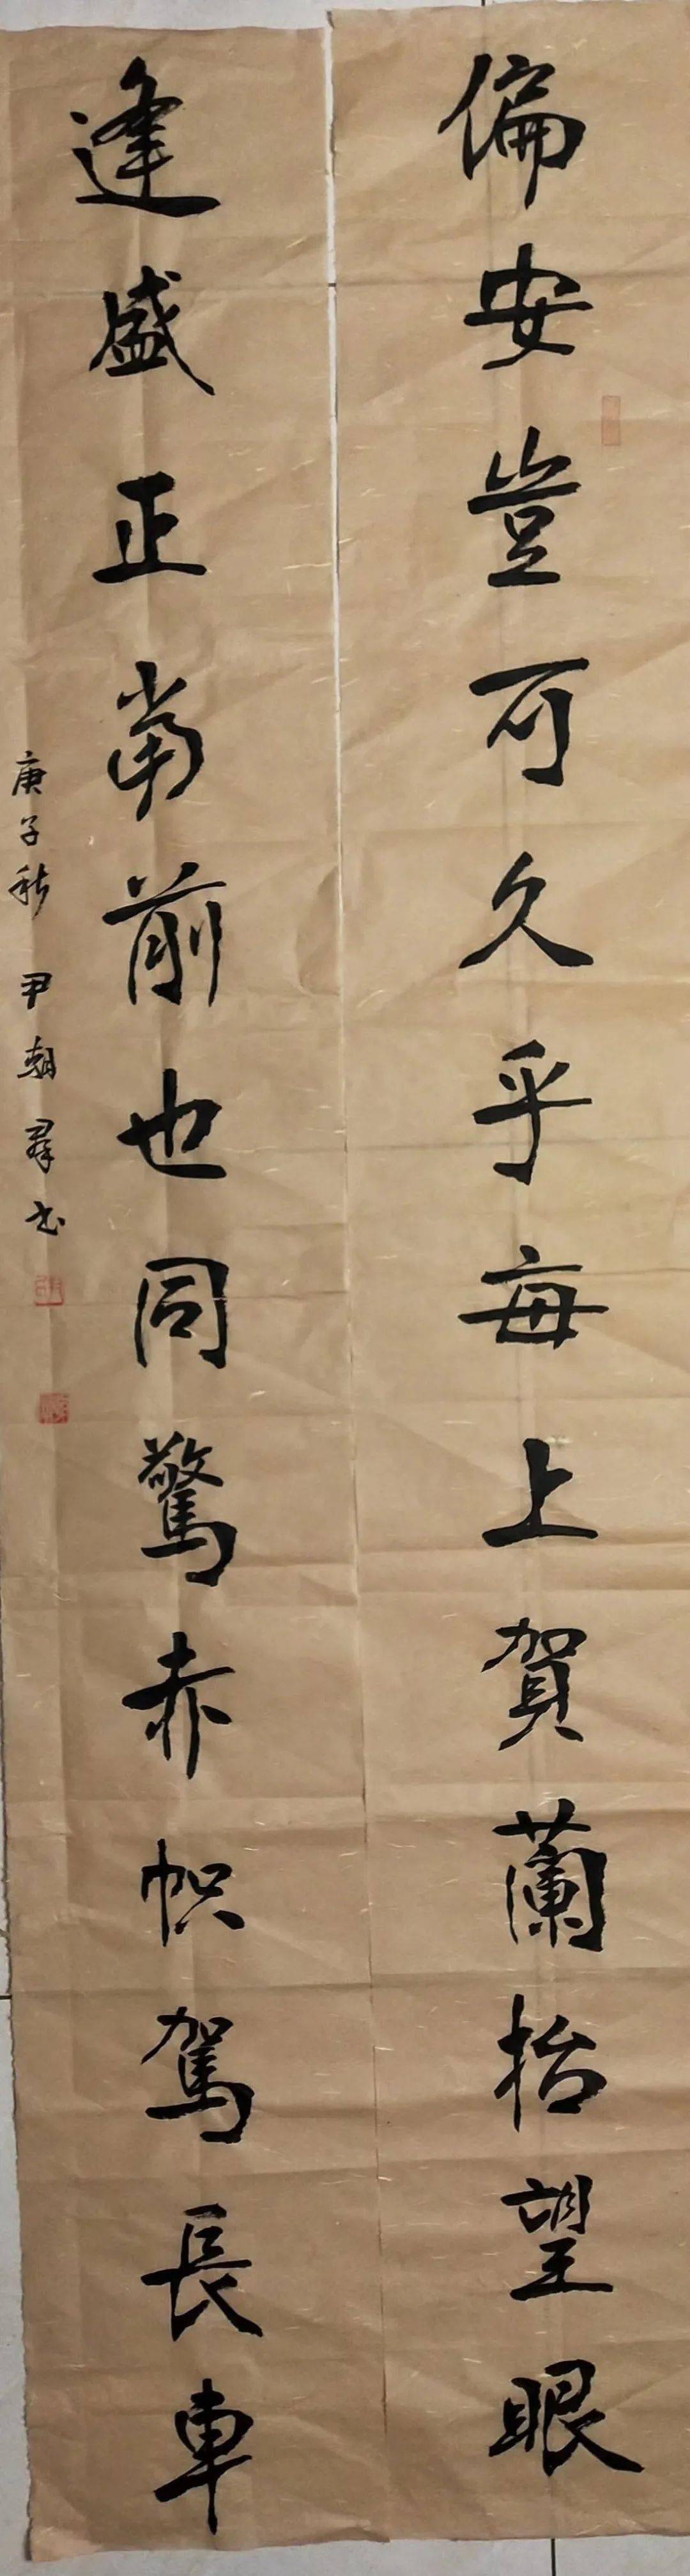 偏安豈可久乎每上賀蘭抬望眼
逢盛正當前也同驚赤帜駕長車
庚子秋 尹朝羣书